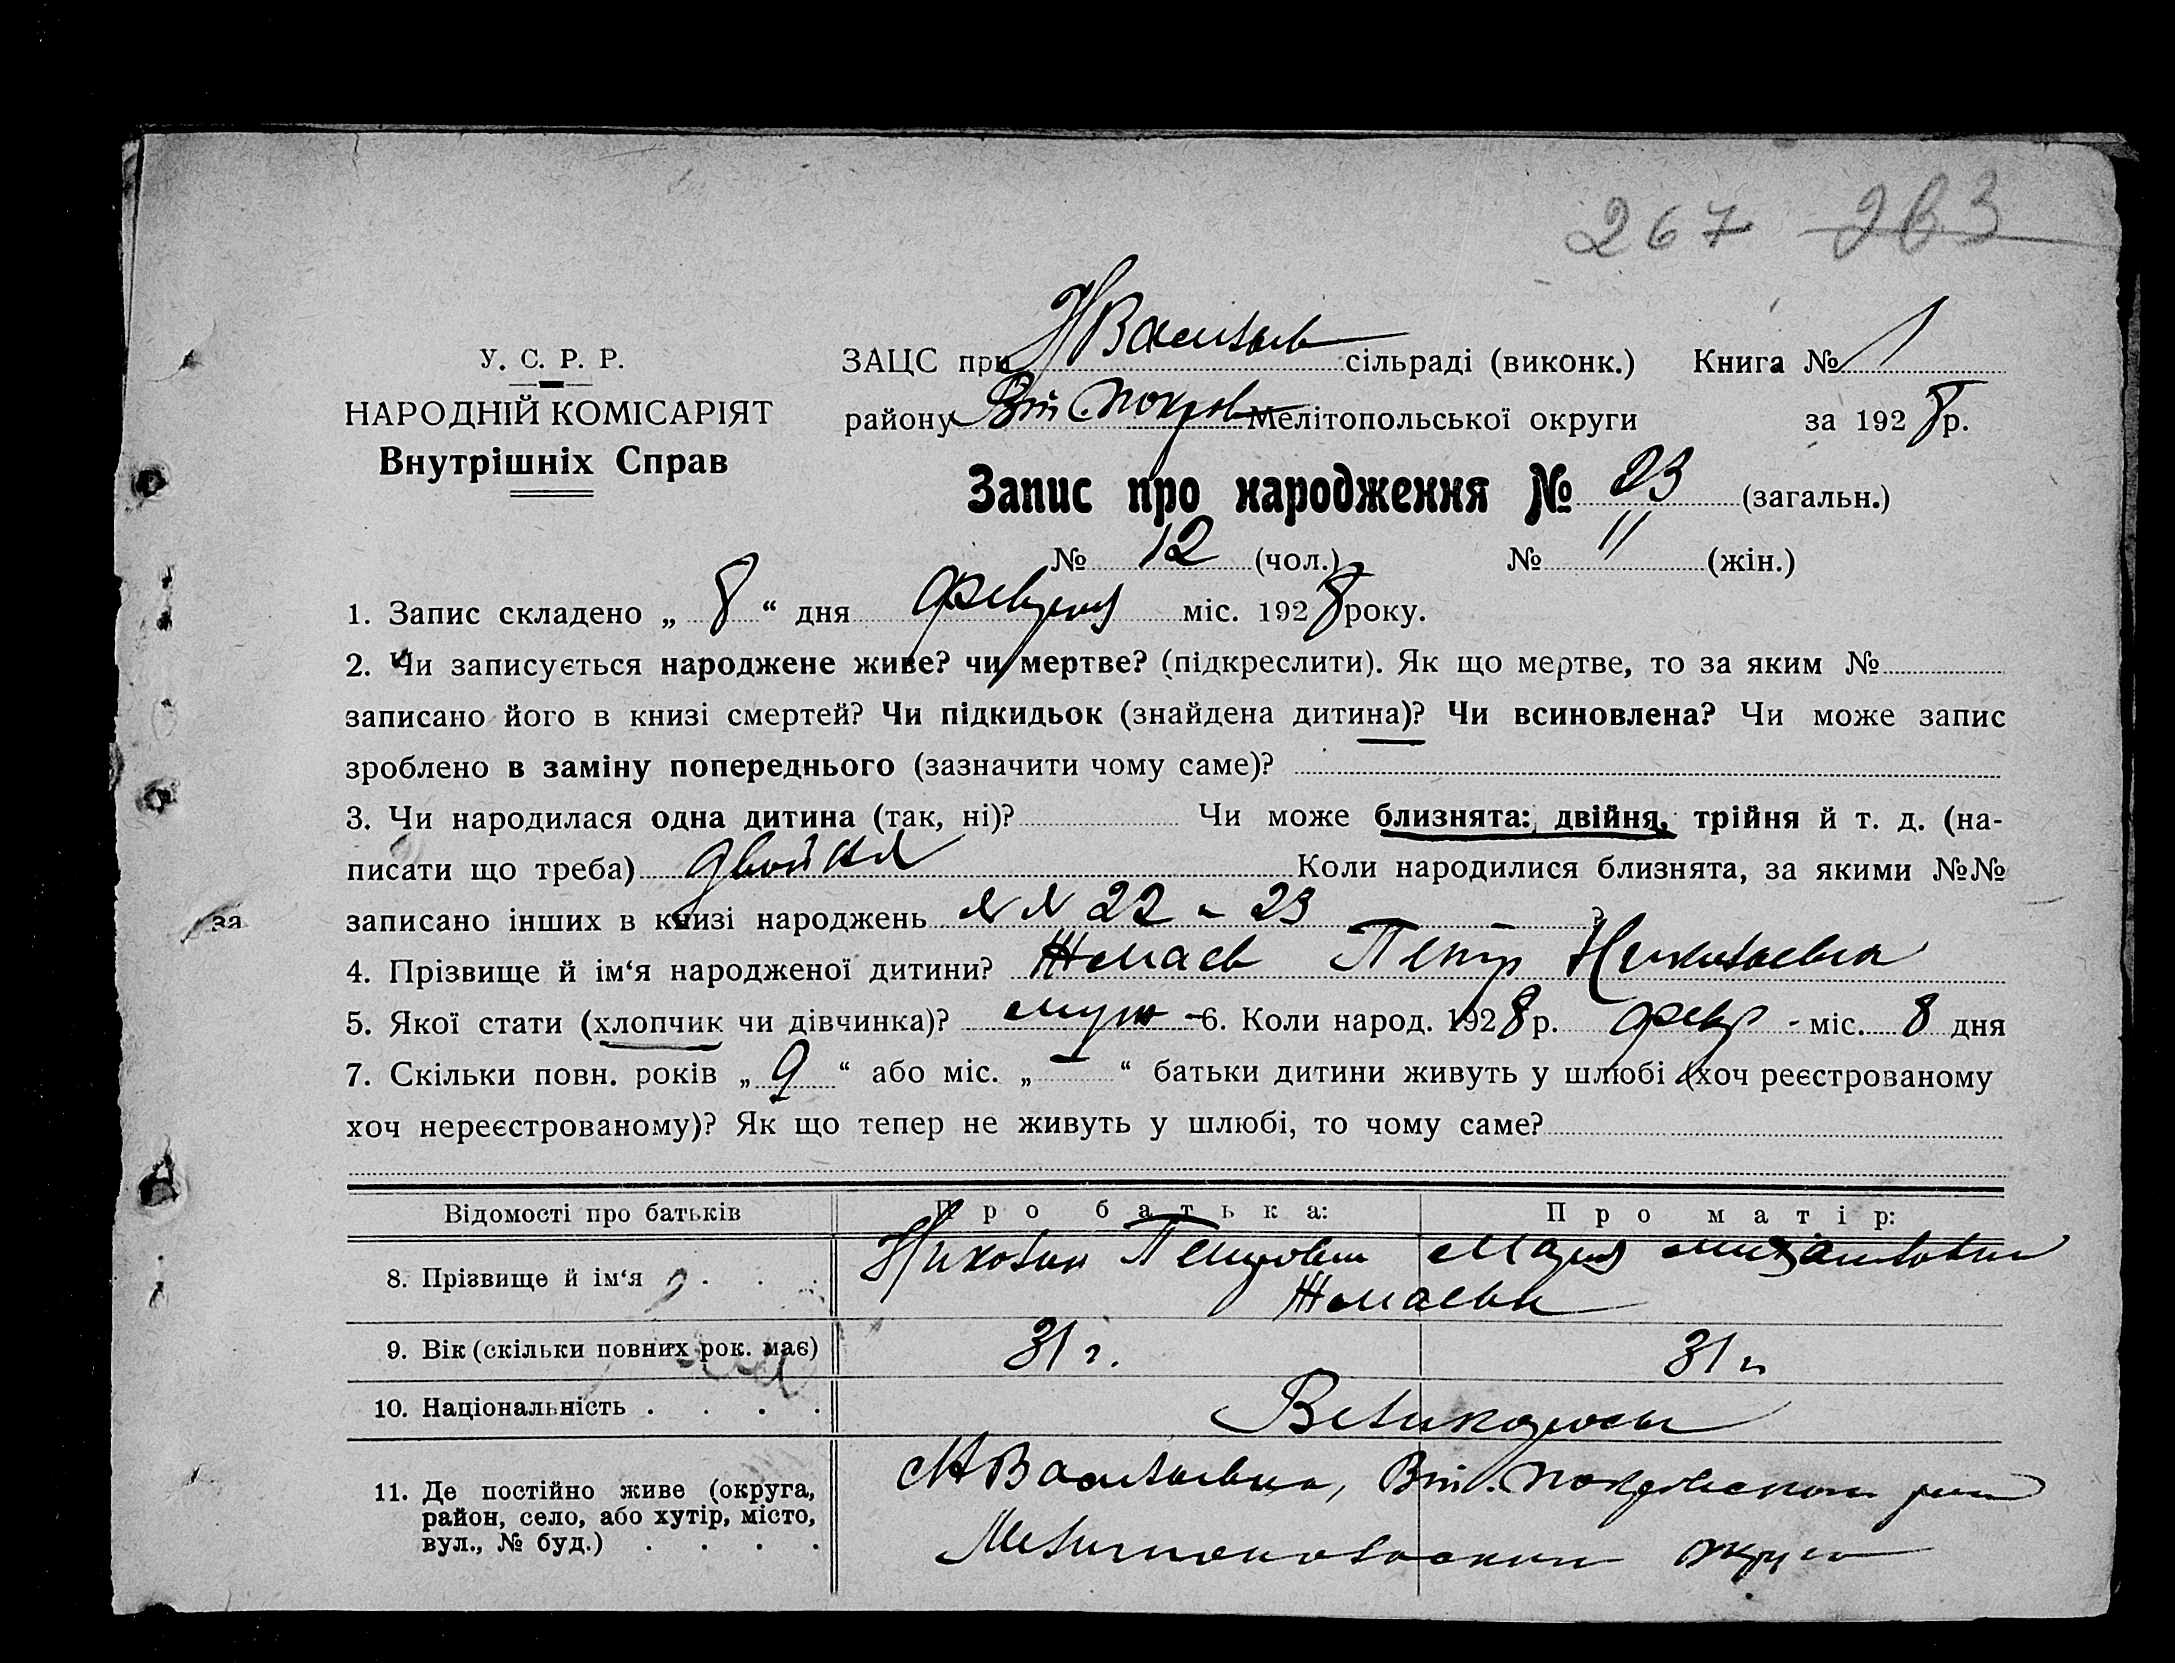 267 263
У. С. Р. Р.
НАРОДНІЙ КОМІСАРІЯТ
Внутрішніх Справ
ЗАЦС при НВасильев сільраді (виконк.) Книга № 1
району Вт. Покров Мелітопольської округи за 1928 р.
Запис про народження № 23 (загальн.)
№ 12 (чол.) № 11 (жін.)
1. Запис складено „ 8 “ дня февраля міс. 1928 року.
2. Чи записується народжене живе? чи мертве? (підкреслити). Як що мертве, то за яким №
записано його в книзі смертей? Чи підкидьок (знайдена дитина)? Чи всиновлена? Чи може запис
зроблено в заміну попереднього (зазначити чому саме)?
3. Чи народилася одна дитина (так, ні)? Чи може близнята: двійня, трійня й т. д. (на-
писати що треба) двойня Коли народилися близнята, за якими №№
за
записано інших в книзі народжень №№ 22 и 23 ?
4. Прізвище й ім‘я народженої дитини? Петр Николаевич
5. Якої стати (хлопчик чи дівчинка)? муж - 6. Коли народ. 1928 р. февр - міс. 8 дня
7. Скільки повн. років „ 9 “ або міс. „ — “ батьки дитини живуть у шлюбі (хоч реєстрованому
хоч нереєстрованому)? Як що тепер не живуть у шлюбі, то чому саме?
Відомості про батьків Про батька: Про матір:
8. Прізвище й ім‘я . . . Николай Петрович Мария Михайловна
9. Вік (скільки повних рок. має) 31 г. 31 г.
10. Національність . . . . Великороссы
11. Де постійно живе (округа,
район, село, або хутір, місто,
вул., № буд.) . . . .
НВасильевка, Вт. Покровского района
Мелитопольского округа